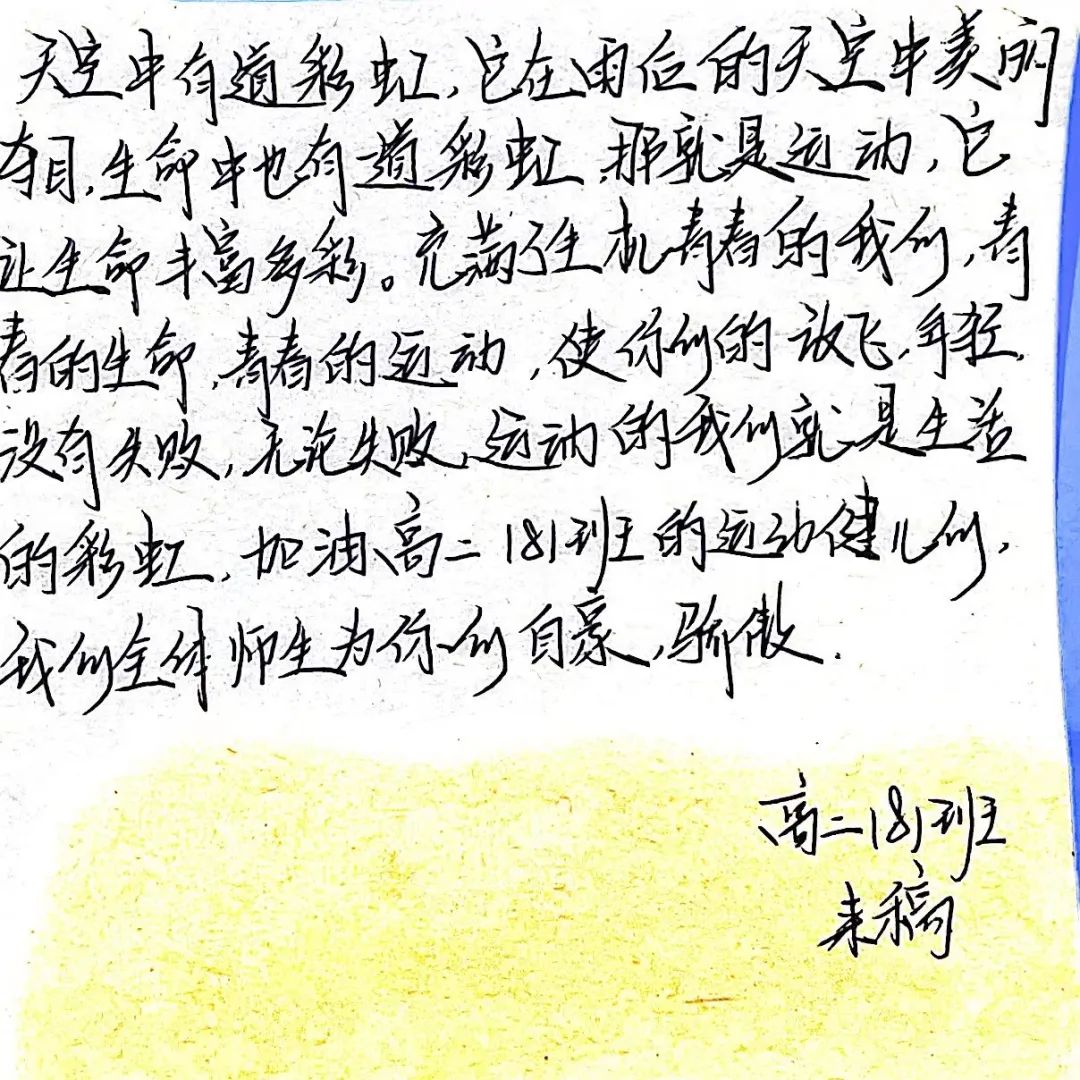 天空中有道彩虹,它在雨后的天空中美丽
夺目,生命中也有道彩虹,那就是运动,它
让生命丰富多彩。充满了生机青春的我们,青
春的生命,青春的运动,使你们的放飞,年轻,
没有失败,无论失败,运动的我们就是生活
的彩虹,加油、高二181班的运动健儿们,
我们全体师生为你们自豪,骄傲.
高二181班
来稿